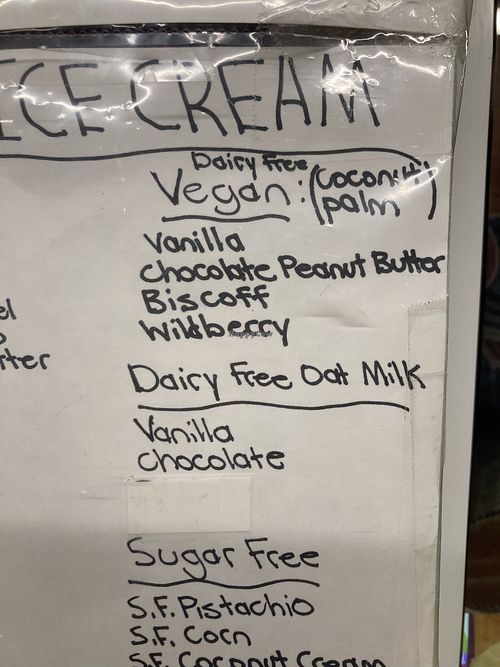 ICE CREAM
Dairy Free
Vegan: (Coconut palm)
Vanilla
Chocolate Peanut Butter
Biscoff
Wildberry
Dairy Free Oat Milk
Vanilla
Chocolate
Sugar Free
S.F. Pistachio
S.F. Corn
S.F. Coconut Cream